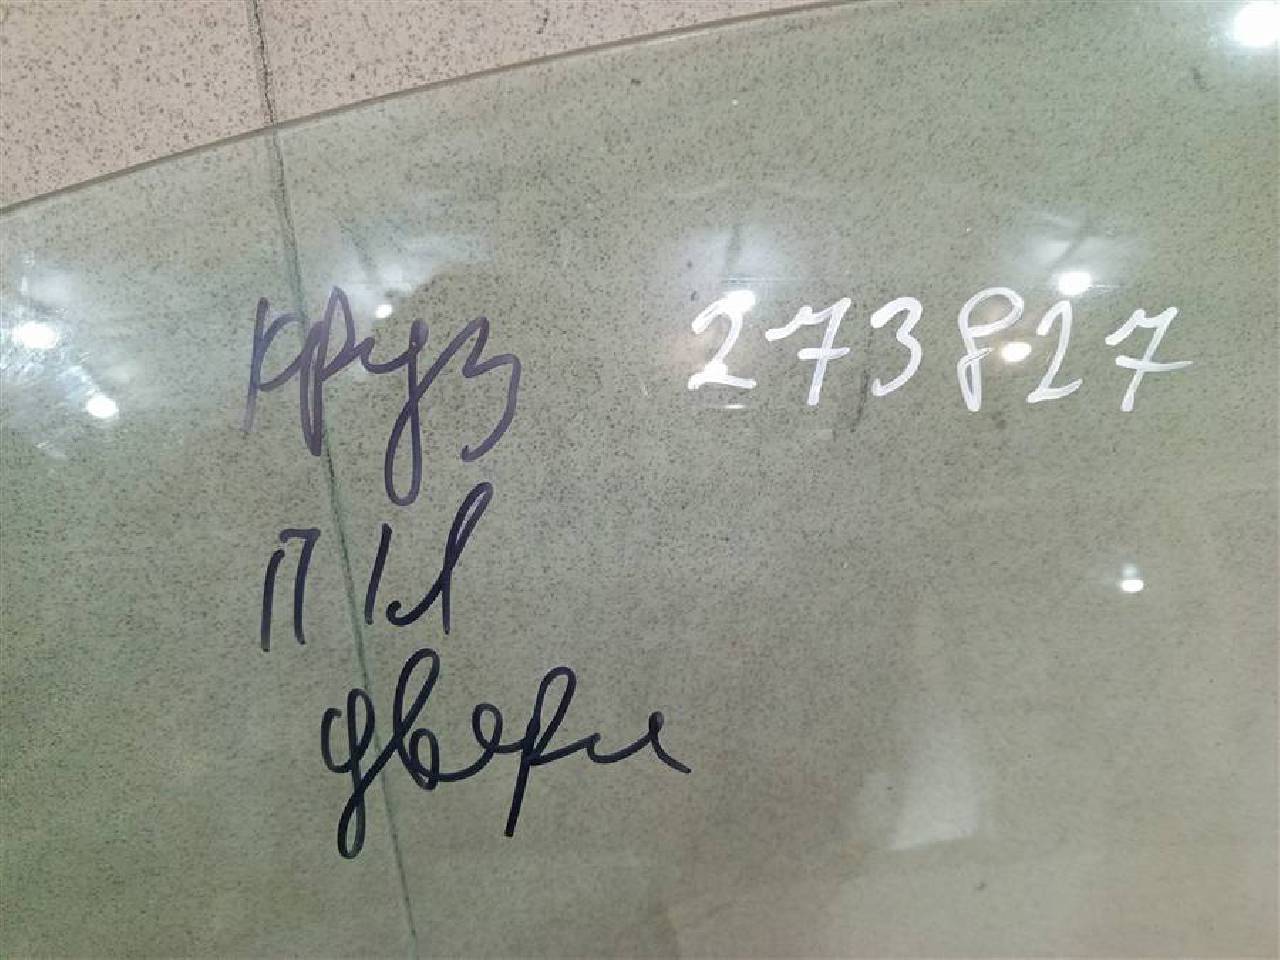 круз
273827
П Л
двери